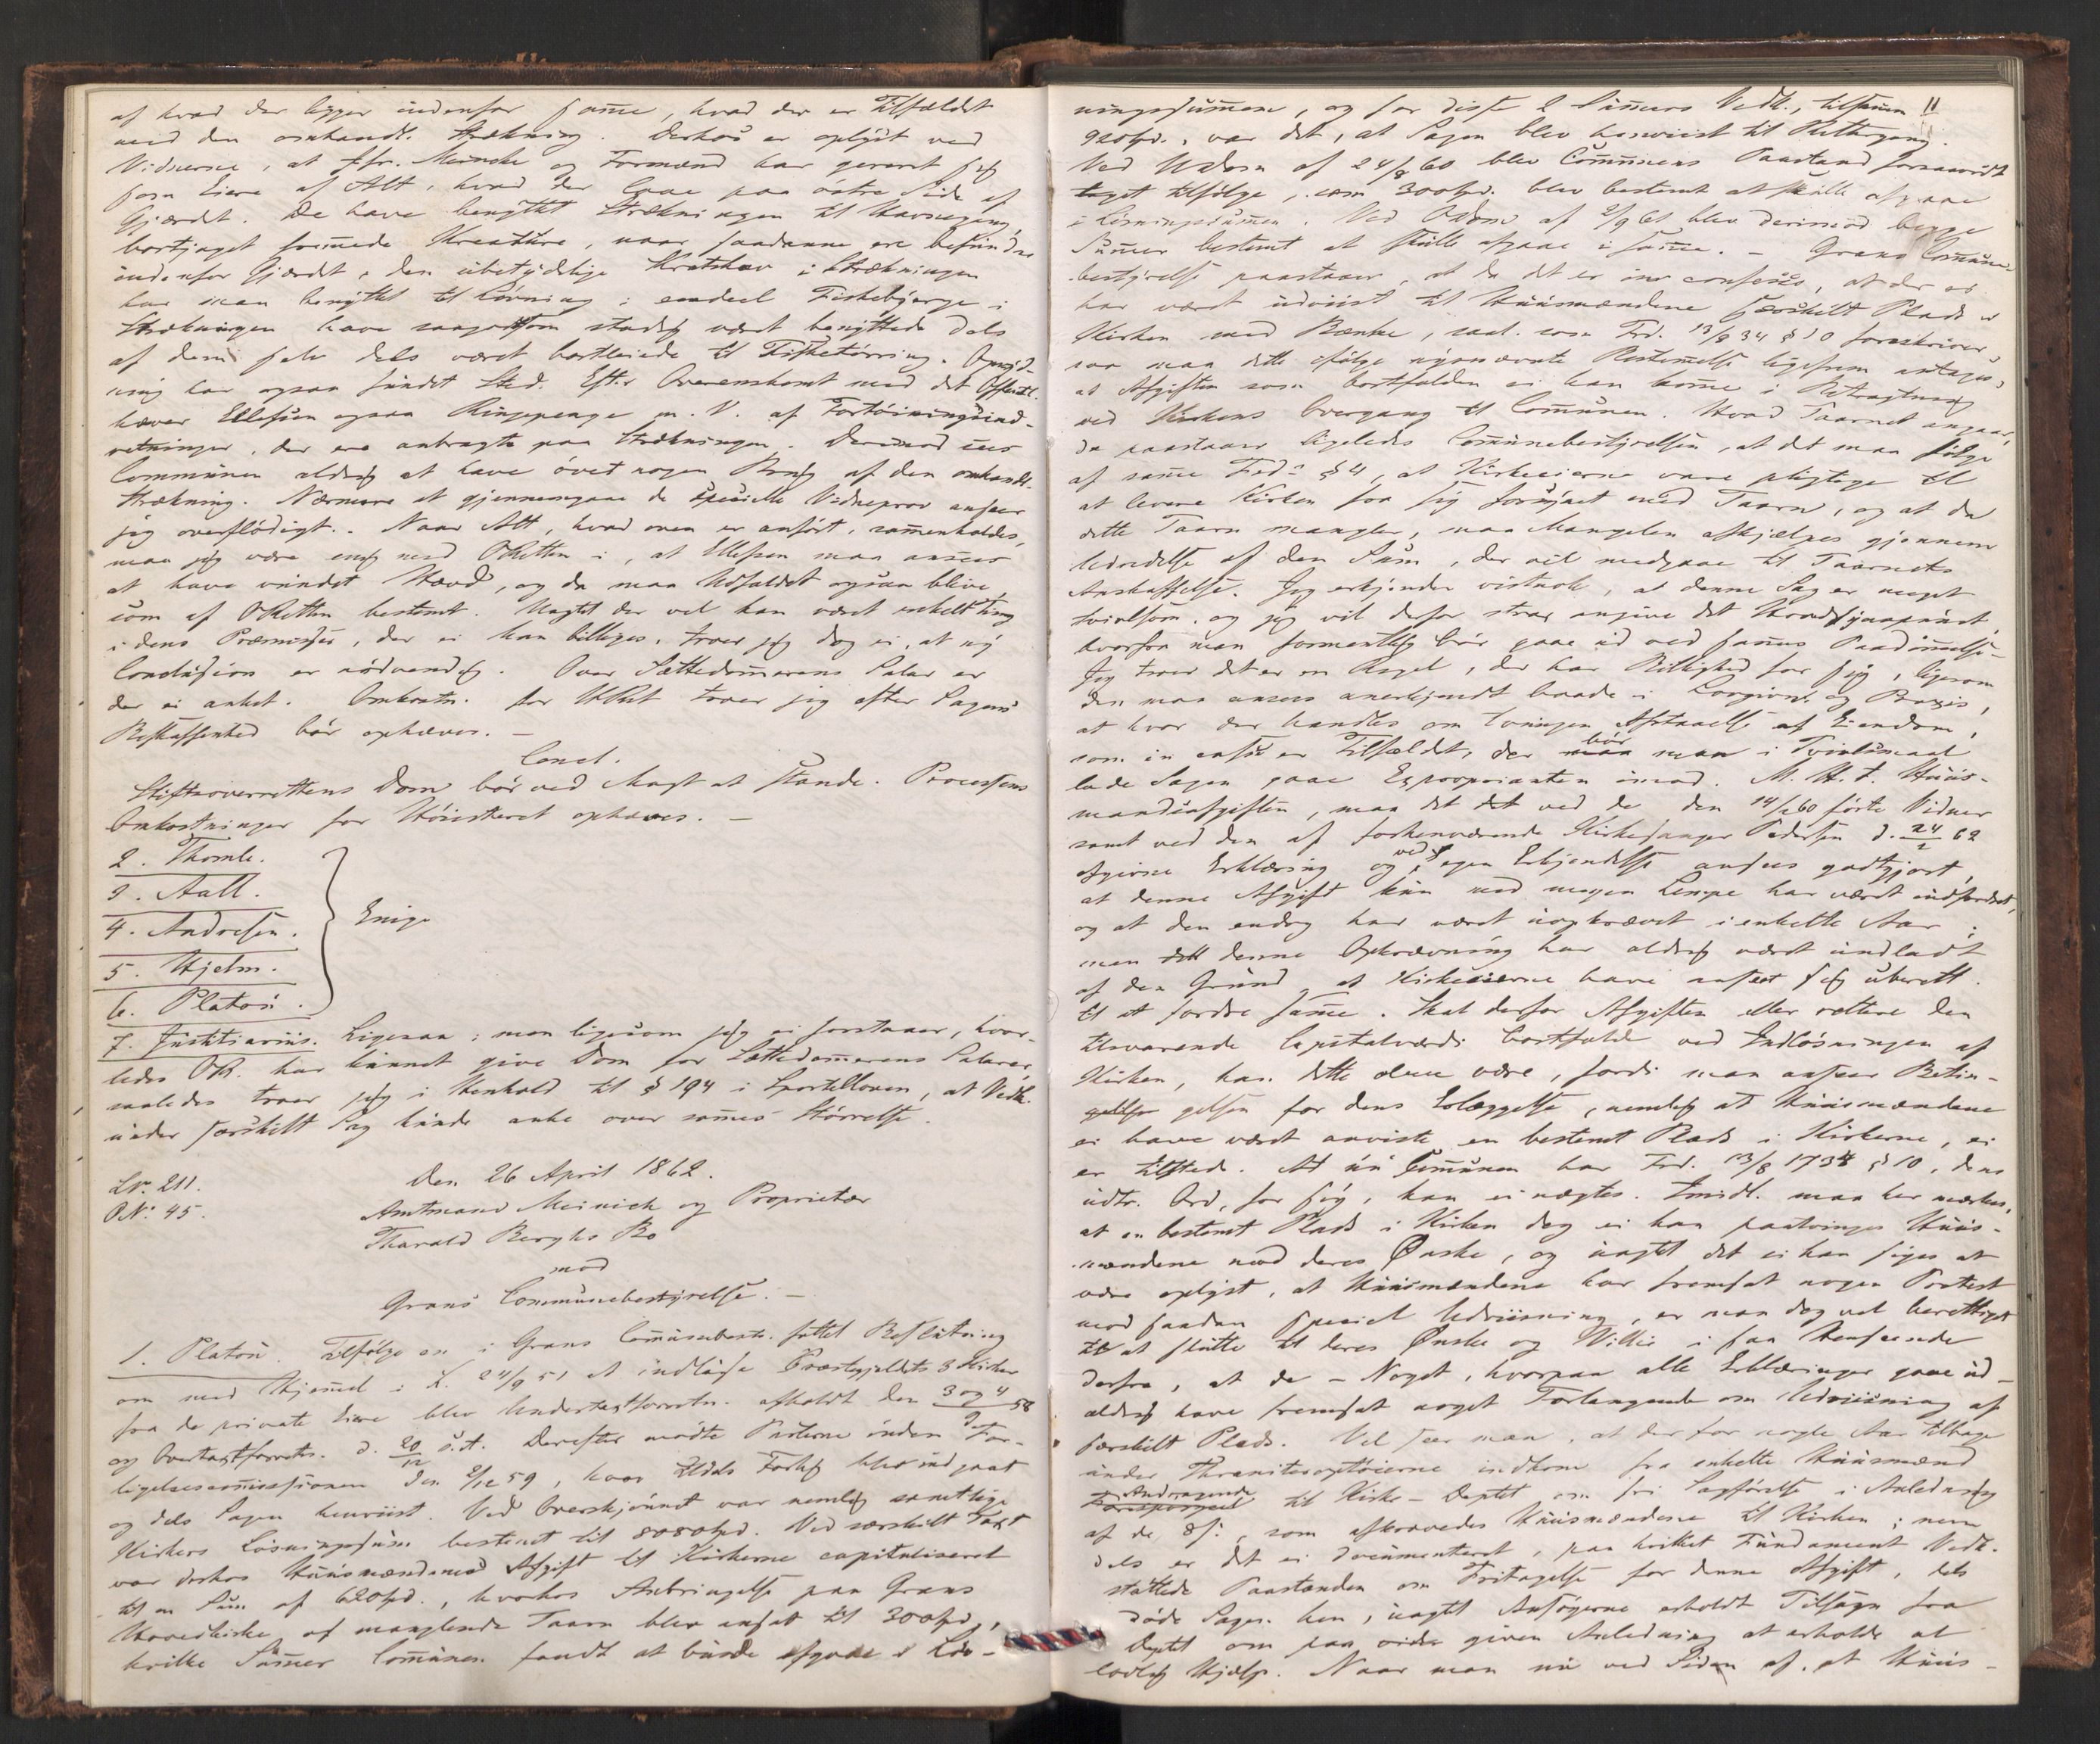 af hvad der ligger indenfor samme, hvad der er Tilfældet
med den omhandl. Strækning. Derhos er oplyst ved
Vidnerne, at Meincke og Formænd har gereret sig
som Eiere af Alt, hvad der laae paa östre Side af
Gjærdet. De have benyttet Strækningen til Havnegang,
bortjaget fremmede Kreature, naar saadanne ere befundne
indenfor Gjærdet, den ubetydelige Kratskov i Strækningen
har man benyttet til Lövning; endeel Fiskebjerge i
Strækningen have ogsaa stadig været benyttede dels
af dem selv dels været bortleiede til Fisketörring. Opryd-
ning har ogsaa fundet Sted. Efter Overenskomst med det Offentl.
hæver Ellefsen ogsaa Ringpenge m. V. af Fortöiningsind-
retninger, der ere anbragte paa Strækningen. Derimod sees
Communen aldrig at have övet nogen Brug af den omhandl.
Strækning. Nærmere at gjennemgaae de specielle Vidneprov anseer
jeg overflödigt. Naar Alt, hvad oven er anfört, sammenholdes,
maa jeg være enig med ORetten i, at Ellefsen maa ansees
at have vundet Hævd, og da maa Udfaldet ogsaa blive
som af ORetten bestemt. Uagtet der vel kan været enkelt Ting
i dens Præmisser, der ei kan billiges, troer jeg dog ei, at ny
Conclusion er nödvendig. Over Sættedommerens Salar er
der ei anket. Omkostn. for HRet troer jeg efter Sagens
Beskaffenhed bör ophæves. —
Concl.
Stiftsoverrettens Dom bör ved Magt at stande. Processens
Omkostninger for Höiesteret ophæves. —
2. Thomle.
3. Aall.
4. Andresen. Enige
5. Hjelm.
6. Platou.
7. Justitiarius. Ligesaa; men ligesom jeg ei forstaaer, hvor-
ledes OR. har kunnet give Dom for Sættedommerens Salarer,
saaledes troer jeg i Henhold til § 194 i Sportelloven, at Vedk.
under særskilt Sag kunde anke over sammes Störrelse.
LNr. 211. Den 26 April 1862.
PNr. 45. Amtmand Meinich og Proprietær
Tharald Berghs Bo
mod
Grans Communebestyrelse. —
1. Platou. Tilfölge en i Grans Communebest. fattet Beslutning
om med Hjemmel i L. 24/9 51 at indlöse Præstegjeldets 3 Kirker
fra de private Eiere blev Undertaxtforretn. afholdt den 3 og 4/9 58
og Overtaxtforretn. d. 20/12 s. A. Derefter mödte Parterne inden For-
ligelsescommissionen den 2/12 59, hvor tildels Forlig blev indgaaet
og dels Sagen henviist. Ved Overskjönnet var nemlig samtlige
Kirkers Löisningssum bestemt til 8080 Spd. Ved særskilt Taxt
var derhos Huusmændenes Afgift til Kirkerne capitaliseret
til en Sum af 620 Spd., hvorhos Anbringelse paa Grans
Hovedkirke af manglende Taarn blev ansat til 300 Spd.,
hvilke Summer Communen fandt at burde afgaae i Lös-
11
ningssummen, og for disse 2 Summers Vedk., tilsammen
920 Spd., var det, at Sagen blev henviist til Rettergang.
Ved UDom af 24/8 60 blev Communens Paastand forsaavidt
taget tilfölge, som 300 Spd. blev bestemt at skulle afgaae
i Lösningssummen. Ved ODom af 2/9 61 blev derimod begge
Summer bestemt at skulle afgaae i samme. — Grans Commune-
bestyrelse paastaaer, at da det er in confesso, at der ei
har været udviist til Huusmændene særskilt Plads i
Kirken med Bænke, saal. som Frd. 13/8 34 § 10 foreskriver,
saa maa dette ifölge nysnævnte Bestemmelse ligefrem antages,
at Afgiften som bortfalden ei kan komme i Betragtning
ved Kirkens Overgang til Communen. Hvad Taarnet angaaer,
da paastaaer ligeledes Communebestyrelsen, at det maa fölge
af samme Frd.s § 4, at Kirkeeierne vare pligtige til
at levere Kirken fra sig forsynet med Taarn, og at da
dette Taarn mangler, maa Mangelen afhjælpes gjennem
Udredelse af den Sum, der vil medgaae til Taarnets
Anskaffelse. Jeg erkjender vistnok, at denne Sag er meget
tvivlsom, og jeg vil derfor strax angive det Hovedsynspunct,
hvorfra man formentlig bör gaae ud ved sammes Paadömmelse.
Jeg troer det er en Regel, der har Billighed for sig, ligesom
den maa ansees anerkjendt baade i Lovgivn. og Praxis,
at hvor der handles om tvungen Afstaaelse af Eiendom,
som in casu er Tilfældet, der bör man i Tvivlsmaal
lade Sagen gaae Expropriaten imod. M. H. t. Huus-
mandsafgiften, maa det ved de den 14/2 60 förte Vidner
samt ved den af forhenværende Kirkesanger Pedersen d. 24/2 62
afgivne Erklæring og ved egen Erkjendelse ansees godtgjort,
at denne Afgift kun med megen Lempe har været indfordret,
og at den endog har været uopkrævet i enkelte Aar;
men denne Opkrævning har aldrig været undladt
af den Grund at Kirkeeierne have anseet sig uberett.
til at fordre samme. Skal derfor Afgiften eller rettere den
tilsvarende Capitalværdi bortfalde ved Indlösningen af
Kirken, kan dette alene være, fordi man anseer Betin-
gelsen for dens Erlæggelse, nemlig at Huusmændene
ei have været anviste en bestemt Plads i Kirkerne, ei
er tilsted. At nu Communen har Frd. 13/8 1734 § 10, dens
udtr. Ord, for sig, kan ei nægtes. Imidl. maa her mærkes,
at en bestemt Plads i Kirken dog ei kan paatvinges Huus-
mændene mod deres Ønske, og uagtet det ei kan siges at
være oplyst, at Huusmændene har fremsat nogen Protest
mod saadan speciel Udviisning, er man dog vel berettiget
til at slutte til deres Ønske og Villie i saa Henseende
derfra, at de — Noget, hvorpaa alle Erklæringer gaae ud —
aldrig have fremsat noget Forlangende om Udviisning af
særskilt Plads. Vel seer man, at der for nogle Aar tilbage
under Thraniteroptöierne indkom fra enkelte Huusmænd
Andragende til Kirke-Deptet om fri Sagförelse i Anledning
af de 8 s:, som afkrævedes Huusmændene til Kirken; men
dels er det ei documenteret, paa hvilket Fundament Vedk.
støttede Paastanden om Fritagelse for denne Afgift, dels
döde Sagen hen, uagtet Ansögerne erholdt Tilsagn fra
Deptet om paa videre given Anledning at erholde al
lovlig Hjælp. Naar man nu ved Siden af, at Huus-